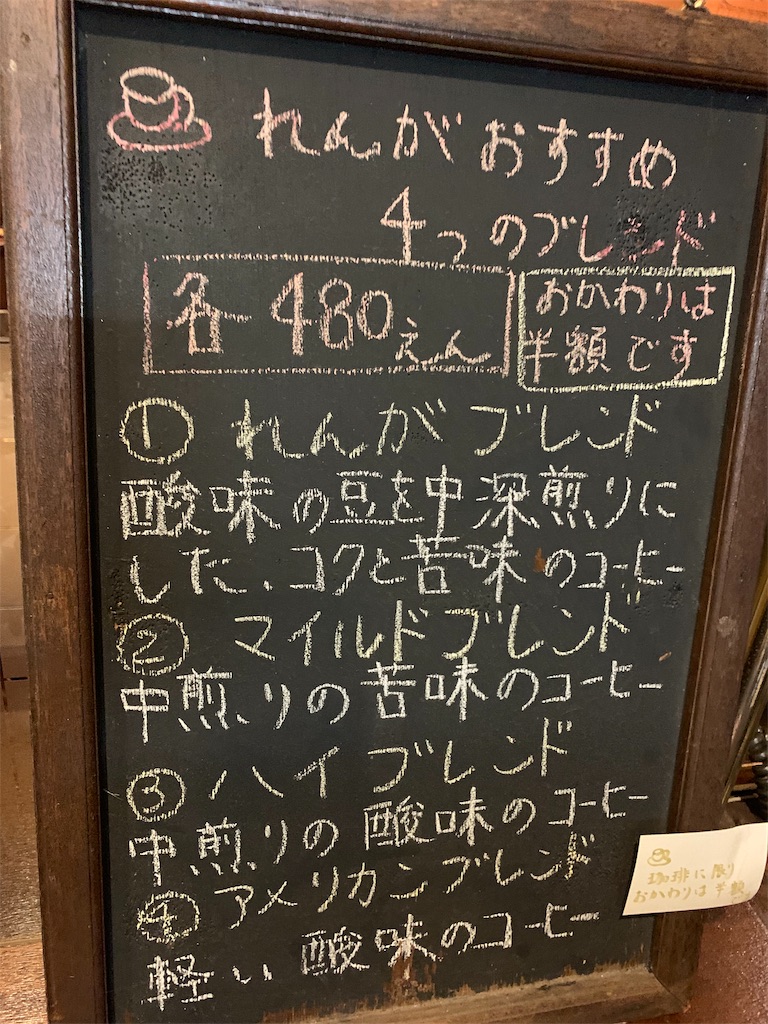 れんがおすすめ
4つのブレンド
各480えん
おかわりは
半額です
① れんがブレンド
酸味の豆を中深煎りに
した、コクと苦味のコーヒー
② マイルドブレンド
中煎りの苦味のコーヒー
③ ハイブレンド
中煎りの酸味のコーヒー
④ アメリカンブレンド
軽い酸味のコーヒー
珈琲に限り
おかわりは半額